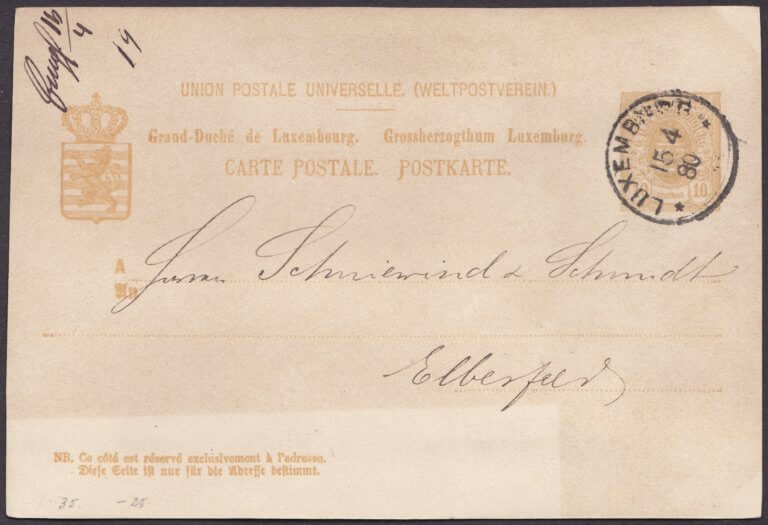 16/4
19
UNION POSTALE UNIVERSELLE. (WELTPOSTVEREIN.)
Grand-Duché de Luxembourg. Grossherzogthum Luxemburg.
CARTE POSTALE. POSTKARTE.
LUXEMBOURG
15 4
80
10
A
An
Herren Schniewind & Schmidt
Elberfeld
NB. Ce côté est réservé exclusivement à l'adresse.
Diese Seite ist nur für die Adresse bestimmt.
35. -25